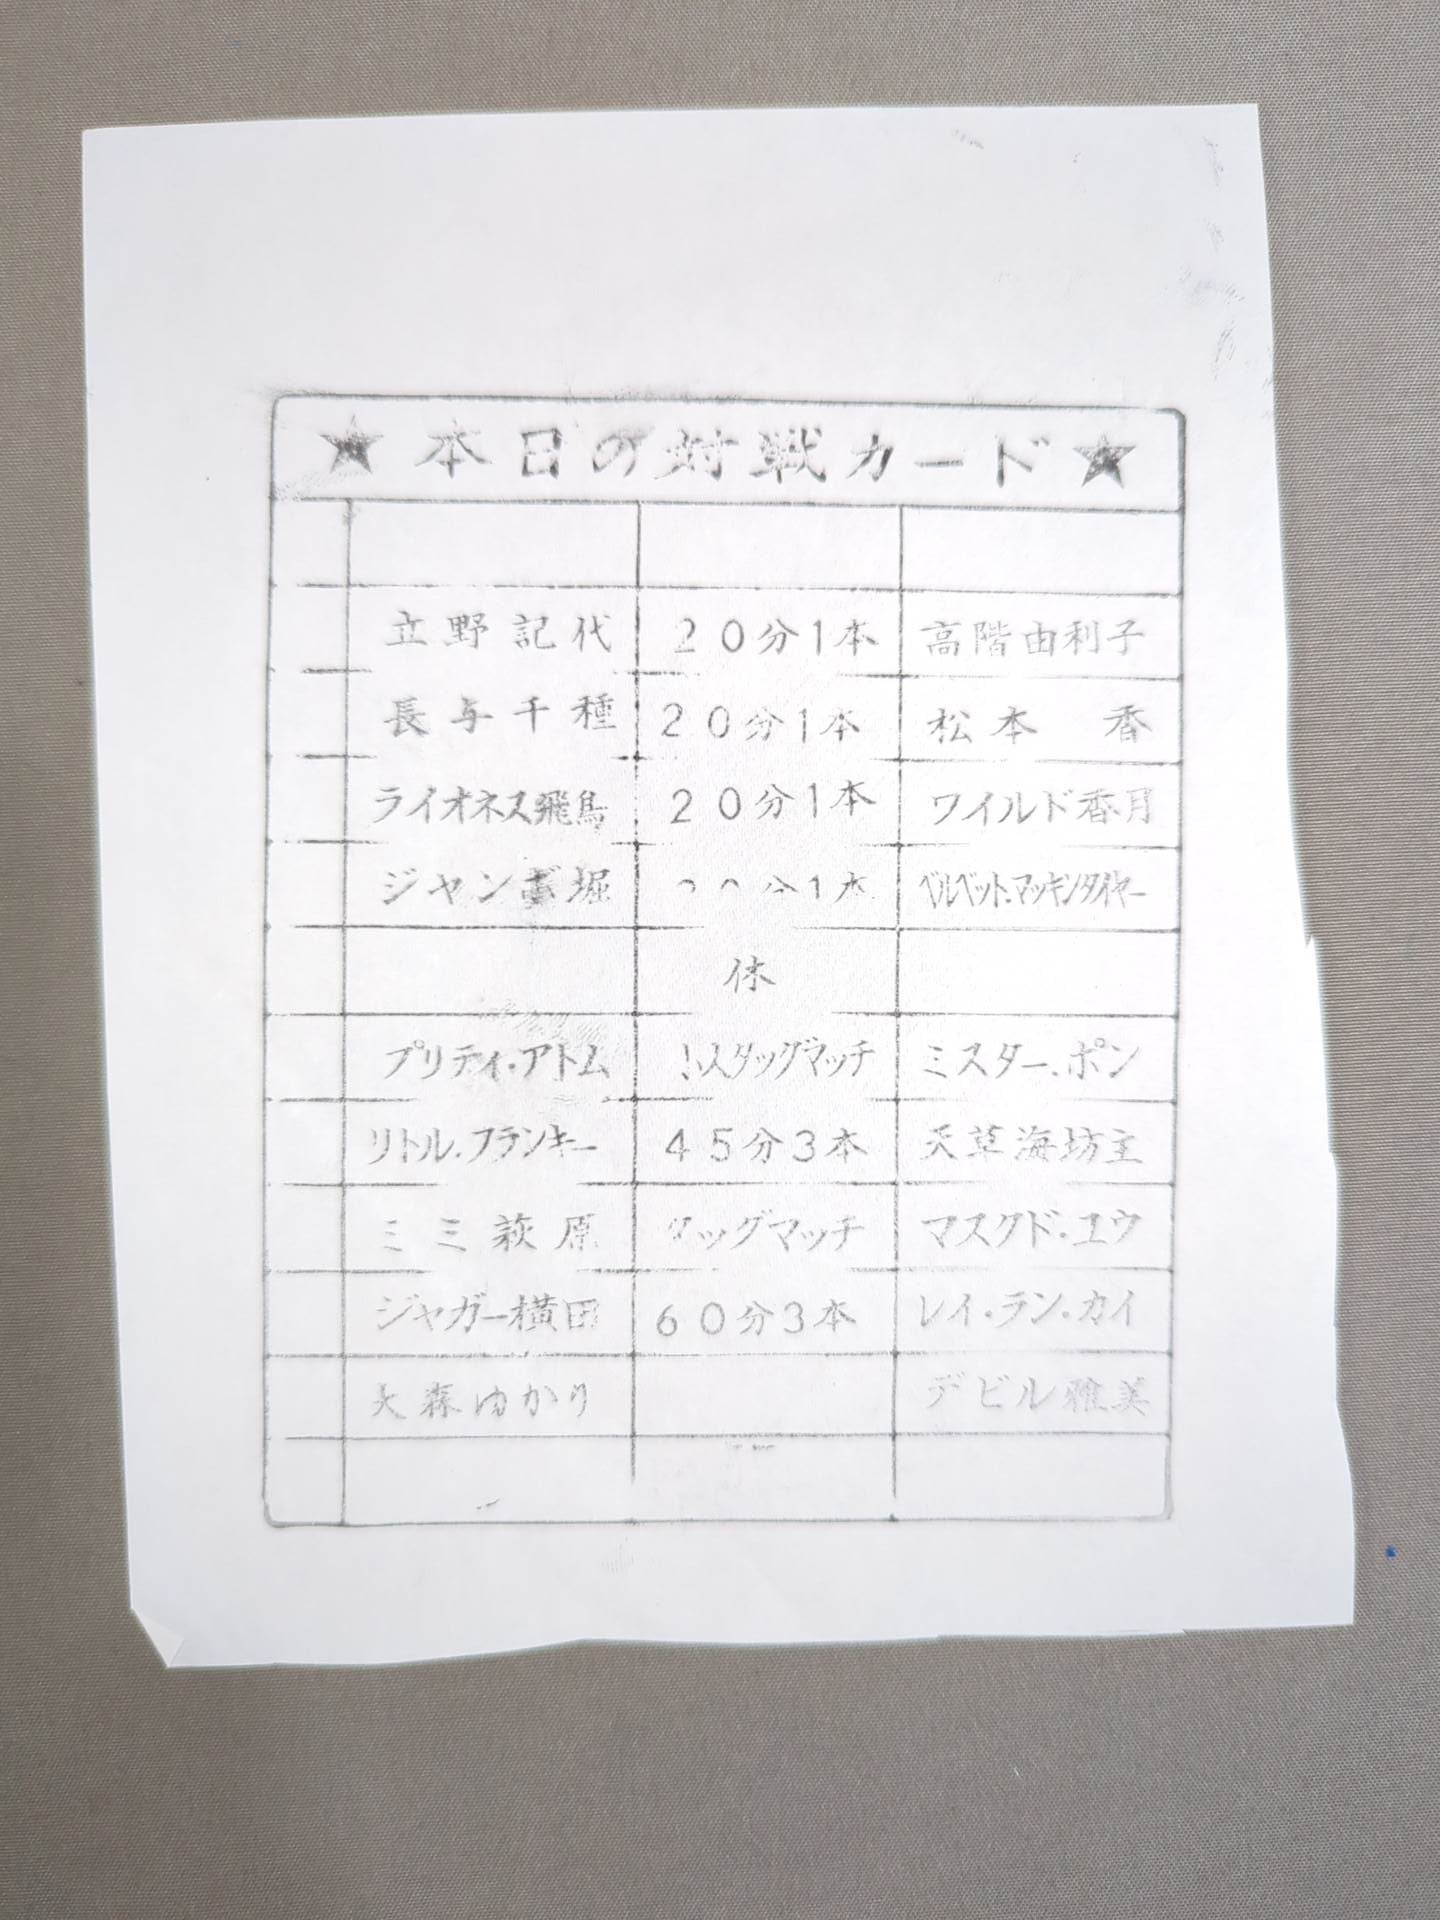 ★本日の対戦カード★
立野記代 20分1本 高階由利子
長与千種 20分1本 松本 香
ライオネス飛鳥 20分1本 ワイルド香月
ジャンボ堀 20分1本 ベルベット・マッキンタイヤー
休
プリティ・アトム タッグマッチ ミスター・ポン
リトル・フランキー 45分3本 天草海坊主
ミミ萩原 タッグマッチ マスクド・ユウ
ジャガー横田 60分3本 レイ・ラン・カイ
大森ゆかり デビル雅美